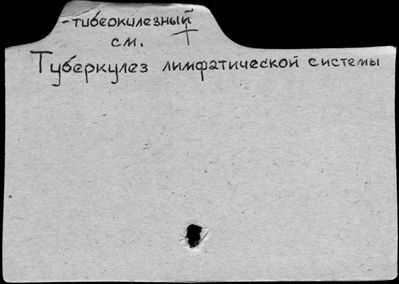 -туберкулезный
см.
Туберкулез лимфатической системы